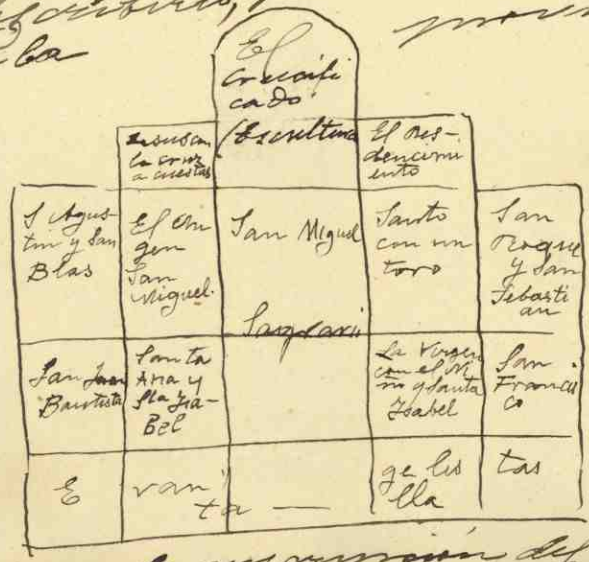 El
crucifi
cado
(Escultura
Jesus con
la cruz
a cuestas
El des-
dencimi
ento
S Agus-
tin y San
Blas
El
gen
San
Miguel.
San Miguel
Santo
con un
toro
San
Roque
y San
Sebasti
an
Sagrario
San Juan
Bautista
Santa
Ana y
Sta Isa-
Bel
La Virgen
con el Ni
ño y Santa
Isabel
San
Francis
co
E
van
ta —
ge lis
lla
tas